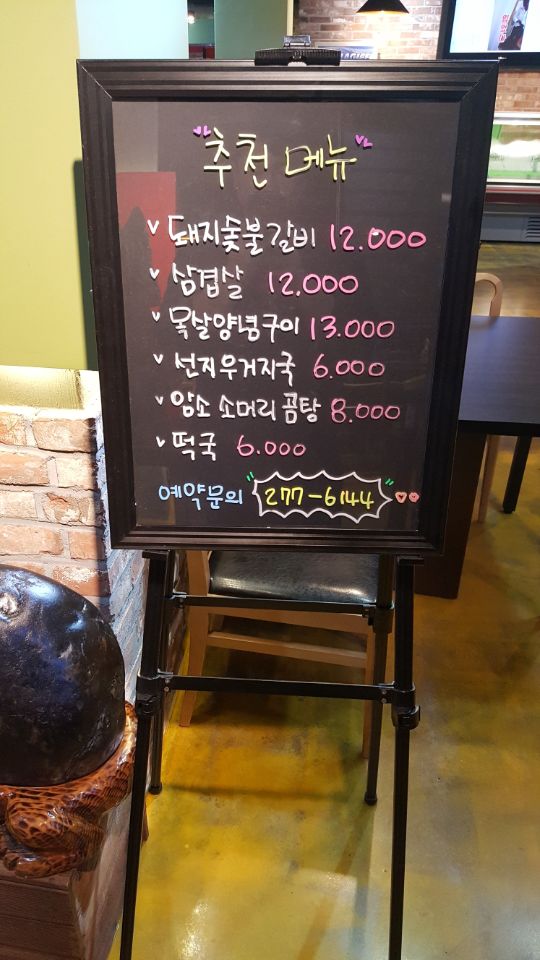 추천 메뉴
돼지숯불갈비 12.000
삼겹살 12.000
목살양념구이 13.000
선지우거지국 6.000
암소 소머리곰탕 8.000
떡국 6.000
예약문의 277-6144